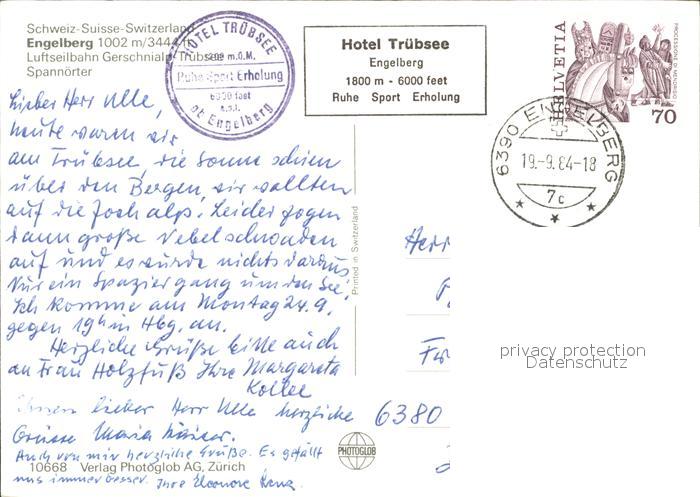 Schweiz-Suisse-Switzerland
Engelberg 1002 m/3444 ft
Luftseilbahn Gerschnialp Trübsee
Spannörter
HOTEL TRÜBSEE
1800 m.ü.M.
Ruhe Sport Erholung
6000 feet
ob Engelberg
Hotel Trübsee
Engelberg
1800 m - 6000 feet
Ruhe Sport Erholung
HELVETIA
PROCESSIONE DI MENDRISIO
70
6390 ENGELBERG
19.-9.84-18
7c
Lieber Herr Ulle,
heute waren wir
am Trübsee, die Sonne schien
über den Bergen, wir wollten
auf die Jochalp. Leider zogen
dann große Nebelschwaden
auf und es wurde nichts daraus,
Nur ein Spaziergang um den See.
Ich komme am Montag 24.9.
gegen 19h in Hbg. an.
Herzliche Grüße bitte auch
an Frau Holzfuß Ihre Margareta
Ihnen lieber Herr Ulle herzliche
Grüsse Maria
Auch von mir herzliche Grüße. Es gefällt
uns immer besser. Ihre Eleonore
Printed in Switzerland
Herr
6380
privacy protection
Datenschutz
PHOTOGLOB
10668 Verlag Photoglob AG, Zürich